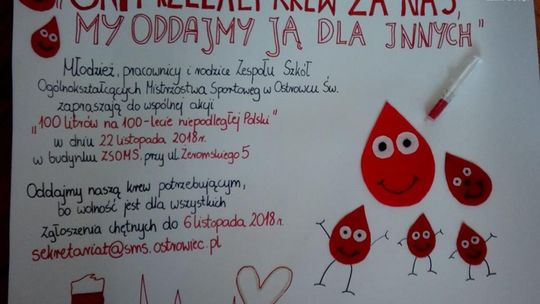 ONI PRZELALI KREW ZA NAS,
MY ODDAJMY JĄ DLA JNNYCH"
Młodzież, pracownicy i rodzice Zespołu Szkół
Ogólnokształcących Mistrzostwa Sportowego w Ostrowcu Św.
zapraszają do wspólnej akcji
"100 litrów na 100-lecie niepodległej Polski"
w dniu 22 listopada 2018r.
w budynku ZSOMS, przy ul. Żeromskiego 5
Oddajmy naszą krew potrzebującym,
bo wolność jest dla wszystkich
Zgłoszenia chętnych do 6 listopada 2018r.
sekretariat@sms.ostrowiec.pl